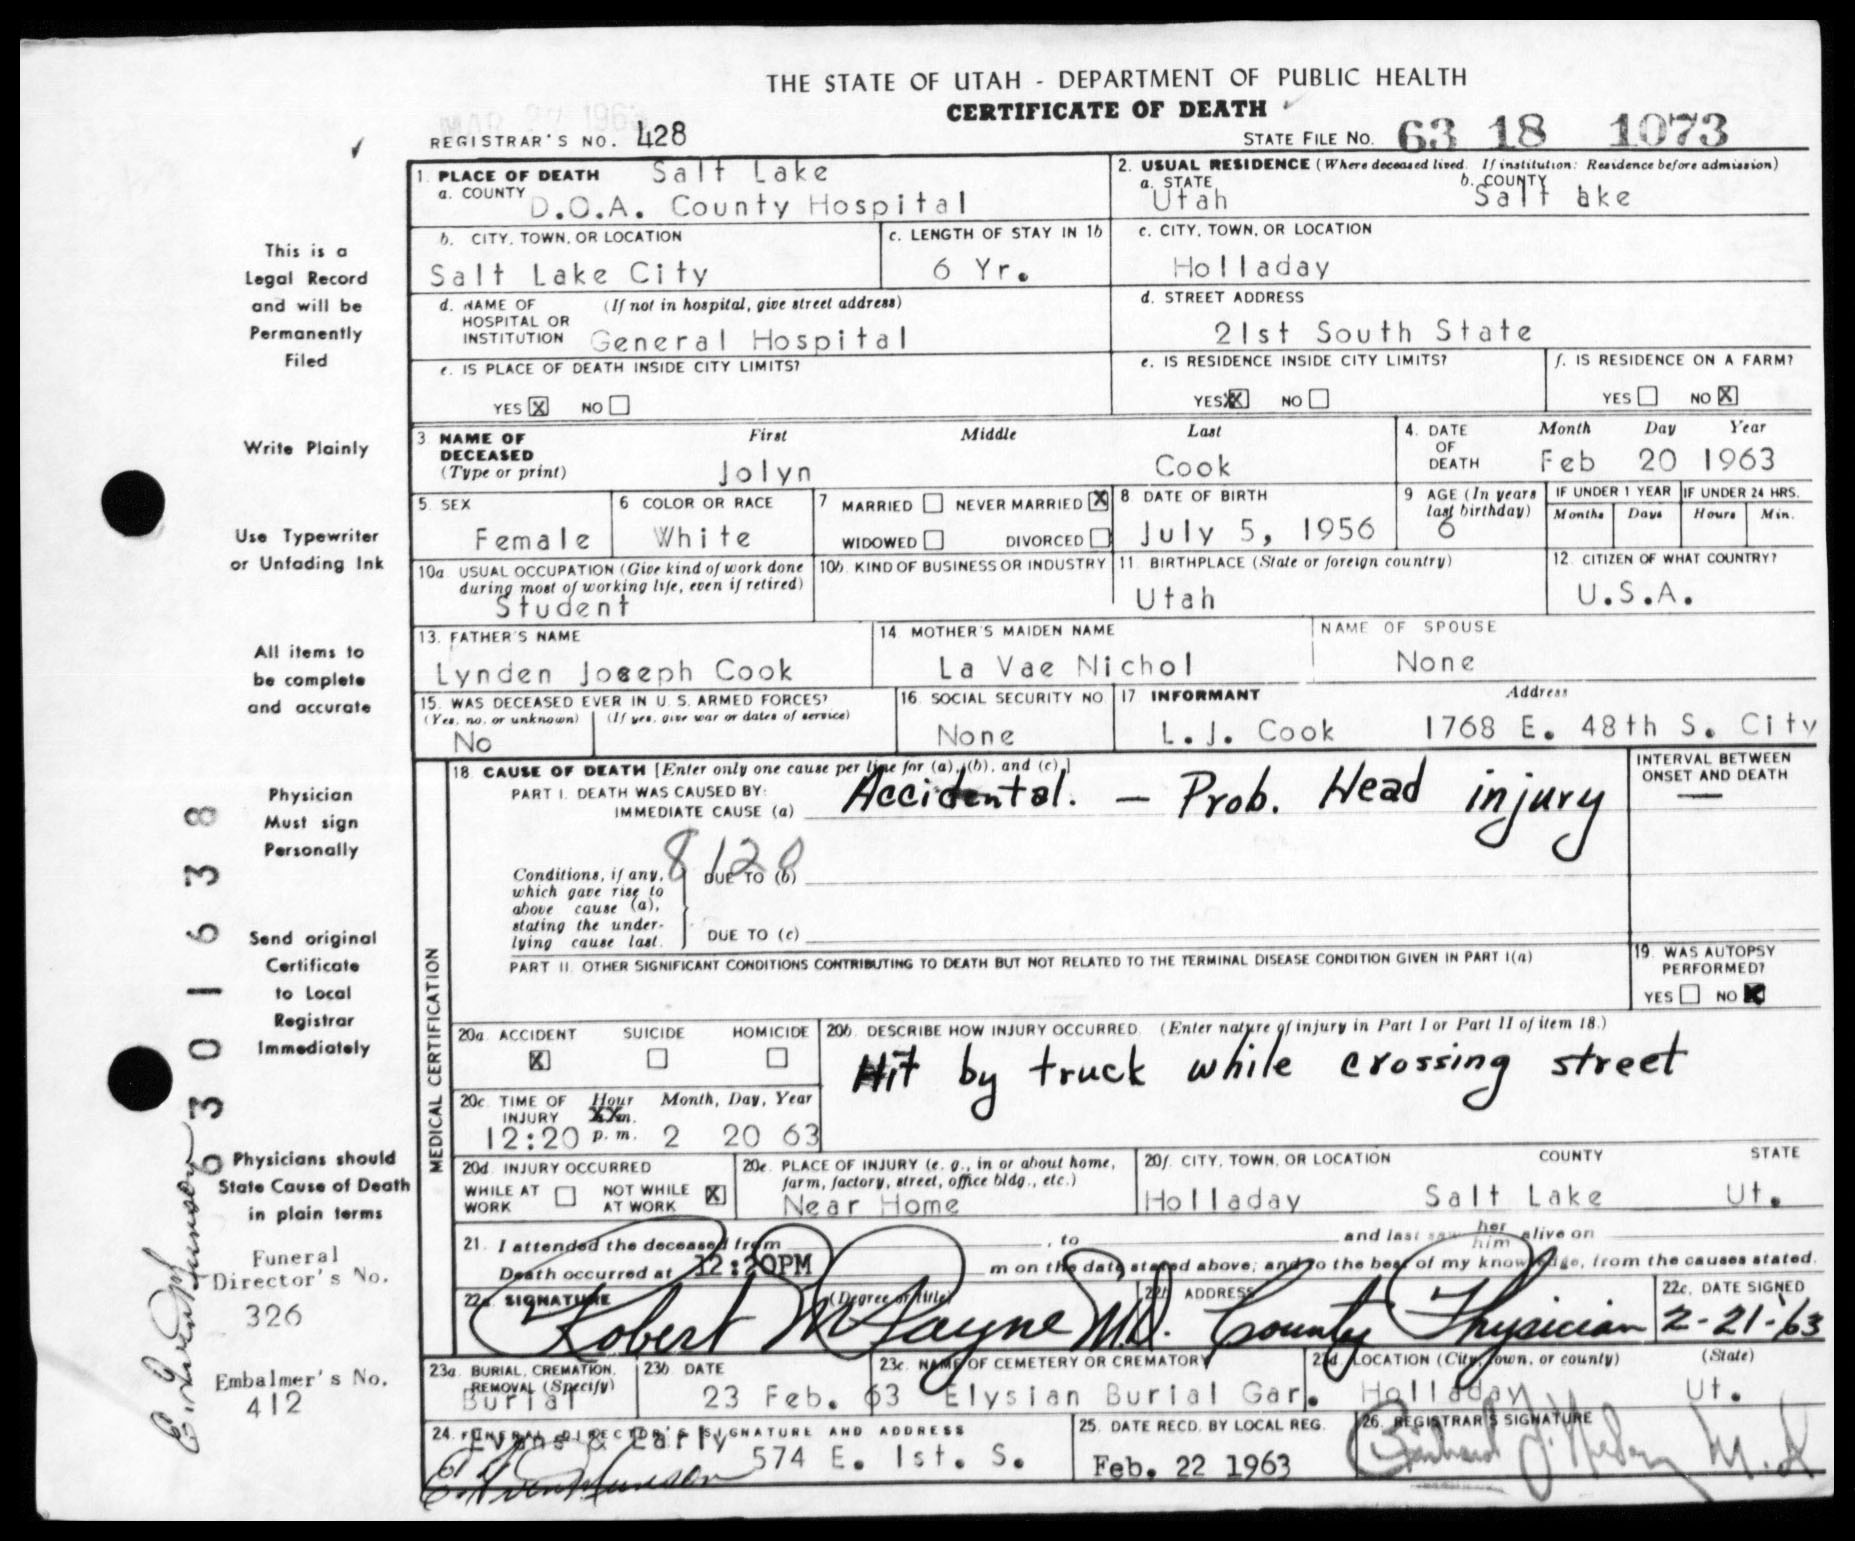 THE STATE OF UTAH - DEPARTMENT OF PUBLIC HEALTH
CERTIFICATE OF DEATH
REGISTRAR'S NO. 428
STATE FILE NO. 63 18 1073
This is a
Legal Record
and will be
Permanently
Filed
Write Plainly
Use Typewriter
or Unfading Ink
All items to
be complete
and accurate
Physician
Must sign
Personally
Send original
Certificate
to Local
Registrar
Immediately
Physicians should
State Cause of Death
in plain terms
Funeral
Director's No.
326
Embalmer's No.
412
6301638
1. PLACE OF DEATH Salt Lake
a. COUNTY D.O.A. County Hospital
2. USUAL RESIDENCE (Where deceased lived. If institution: Residence before admission)
a. STATE Utah b. COUNTY Salt ake
b. CITY, TOWN, OR LOCATION Salt Lake City
c. LENGTH OF STAY IN 1b 6 Yr.
c. CITY, TOWN, OR LOCATION Holladay
d. NAME OF HOSPITAL OR INSTITUTION (If not in hospital, give street address) General Hospital
d. STREET ADDRESS 21st South State
e. IS PLACE OF DEATH INSIDE CITY LIMITS? YES X NO
e. IS RESIDENCE INSIDE CITY LIMITS? YES X NO
f. IS RESIDENCE ON A FARM? YES NO X
3. NAME OF DECEASED (Type or print) First Jolyn Middle Last Cook
4. DATE OF DEATH Month Feb Day 20 Year 1963
5. SEX Female
6 COLOR OR RACE White
7 MARRIED NEVER MARRIED X WIDOWED DIVORCED
8 DATE OF BIRTH July 5, 1956
9 AGE (In years last birthday) 6
IF UNDER 1 YEAR Months Days
IF UNDER 24 HRS. Hours Min.
10a USUAL OCCUPATION (Give kind of work done during most of working life, even if retired) Student
10b. KIND OF BUSINESS OR INDUSTRY
11. BIRTHPLACE (State or foreign country) Utah
12. CITIZEN OF WHAT COUNTRY? U.S.A.
13. FATHER'S NAME Lynden Joseph Cook
14 MOTHER'S MAIDEN NAME La Vae Nichol
NAME OF SPOUSE None
15. WAS DECEASED EVER IN U. S. ARMED FORCES? (Yes, no, or unknown) (If yes, give war or dates of service) No
16. SOCIAL SECURITY NO None
17 INFORMANT L.J. Cook Address 1768 E. 48th S. City
MEDICAL CERTIFICATION
18. CAUSE OF DEATH [Enter only one cause per line for (a), (b), and (c).]
PART I. DEATH WAS CAUSED BY:
IMMEDIATE CAUSE (a) Accidental. — Prob. Head injury
INTERVAL BETWEEN ONSET AND DEATH —
Conditions, if any, which gave rise to above cause (a), stating the underlying cause last.
8120
DUE TO (b)
DUE TO (c)
PART II. OTHER SIGNIFICANT CONDITIONS CONTRIBUTING TO DEATH BUT NOT RELATED TO THE TERMINAL DISEASE CONDITION GIVEN IN PART I(a)
19. WAS AUTOPSY PERFORMED? YES NO X
20a ACCIDENT X SUICIDE HOMICIDE
20b. DESCRIBE HOW INJURY OCCURRED. (Enter nature of injury in Part I or Part II of item 18.)
Hit by truck while crossing street
20c. TIME OF INJURY Hour Month, Day, Year
12:20 p. m. 2 20 63
20d. INJURY OCCURRED WHILE AT WORK NOT WHILE AT WORK X
20e. PLACE OF INJURY (e. g., in or about home, farm, factory, street, office bldg., etc.) Near Home
20f. CITY, TOWN, OR LOCATION Holladay COUNTY Salt Lake STATE Ut.
21. I attended the deceased from , to and last saw her him alive on
Death occurred at 12:20PM m on the date stated above; and to the best of my knowledge, from the causes stated.
22a. SIGNATURE (Degree or title) Robert M Payne M.D.
22b. ADDRESS County Physician
22c. DATE SIGNED 2-21-'63
23a. BURIAL, CREMATION, REMOVAL (Specify) Burial
23b. DATE 23 Feb. 63
23c. NAME OF CEMETERY OR CREMATORY Elysian Burial Gar.
23d. LOCATION (City, town, or county) (State) Holladay Ut.
24. FUNERAL DIRECTOR'S SIGNATURE AND ADDRESS Evans & Early 574 E. 1st. S.
25. DATE RECD. BY LOCAL REG. Feb. 22 1963
26. REGISTRAR'S SIGNATURE